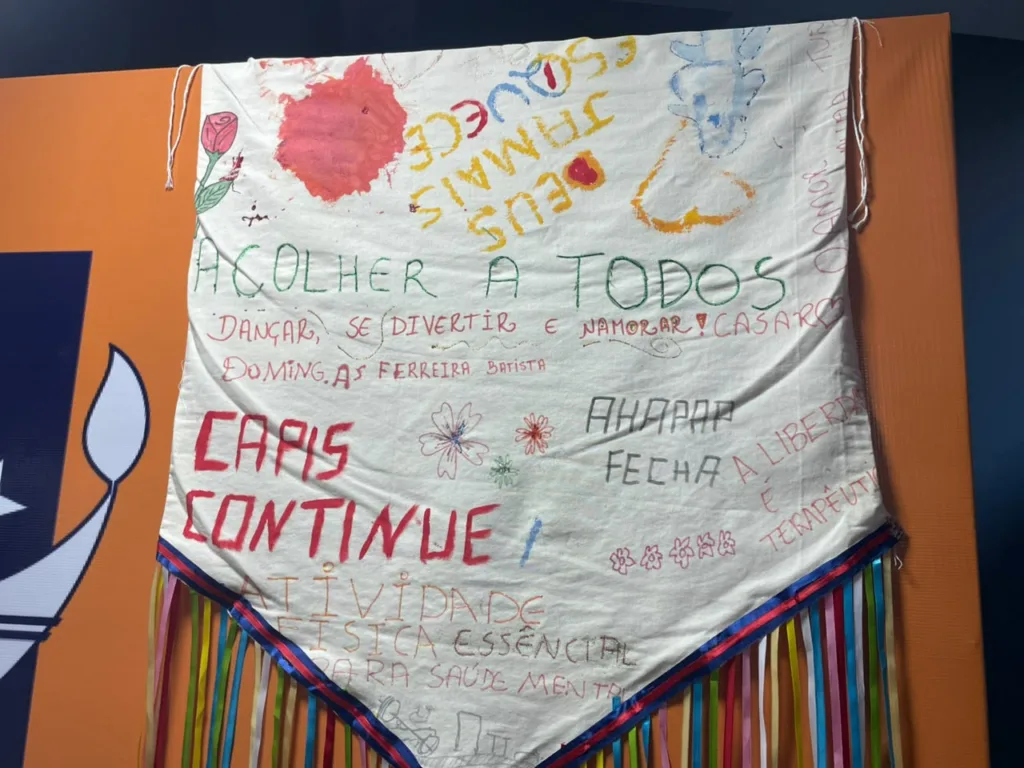 DEUS
JAMAIS
ESQUECE
ACOLHER A TODOS
DANÇAR, SE DIVERTIR E NAMORAR! CASAR
DOMINGAS FERREIRA BATISTA
CAPIS
CONTINUE
AHAPAP
FECHA
A LIBERDA
É
TERAPÊUTI
ATIVIDADE
FÍSICA ESSÊNCIAL
PARA SAÚDE MENTAL
O AMOR